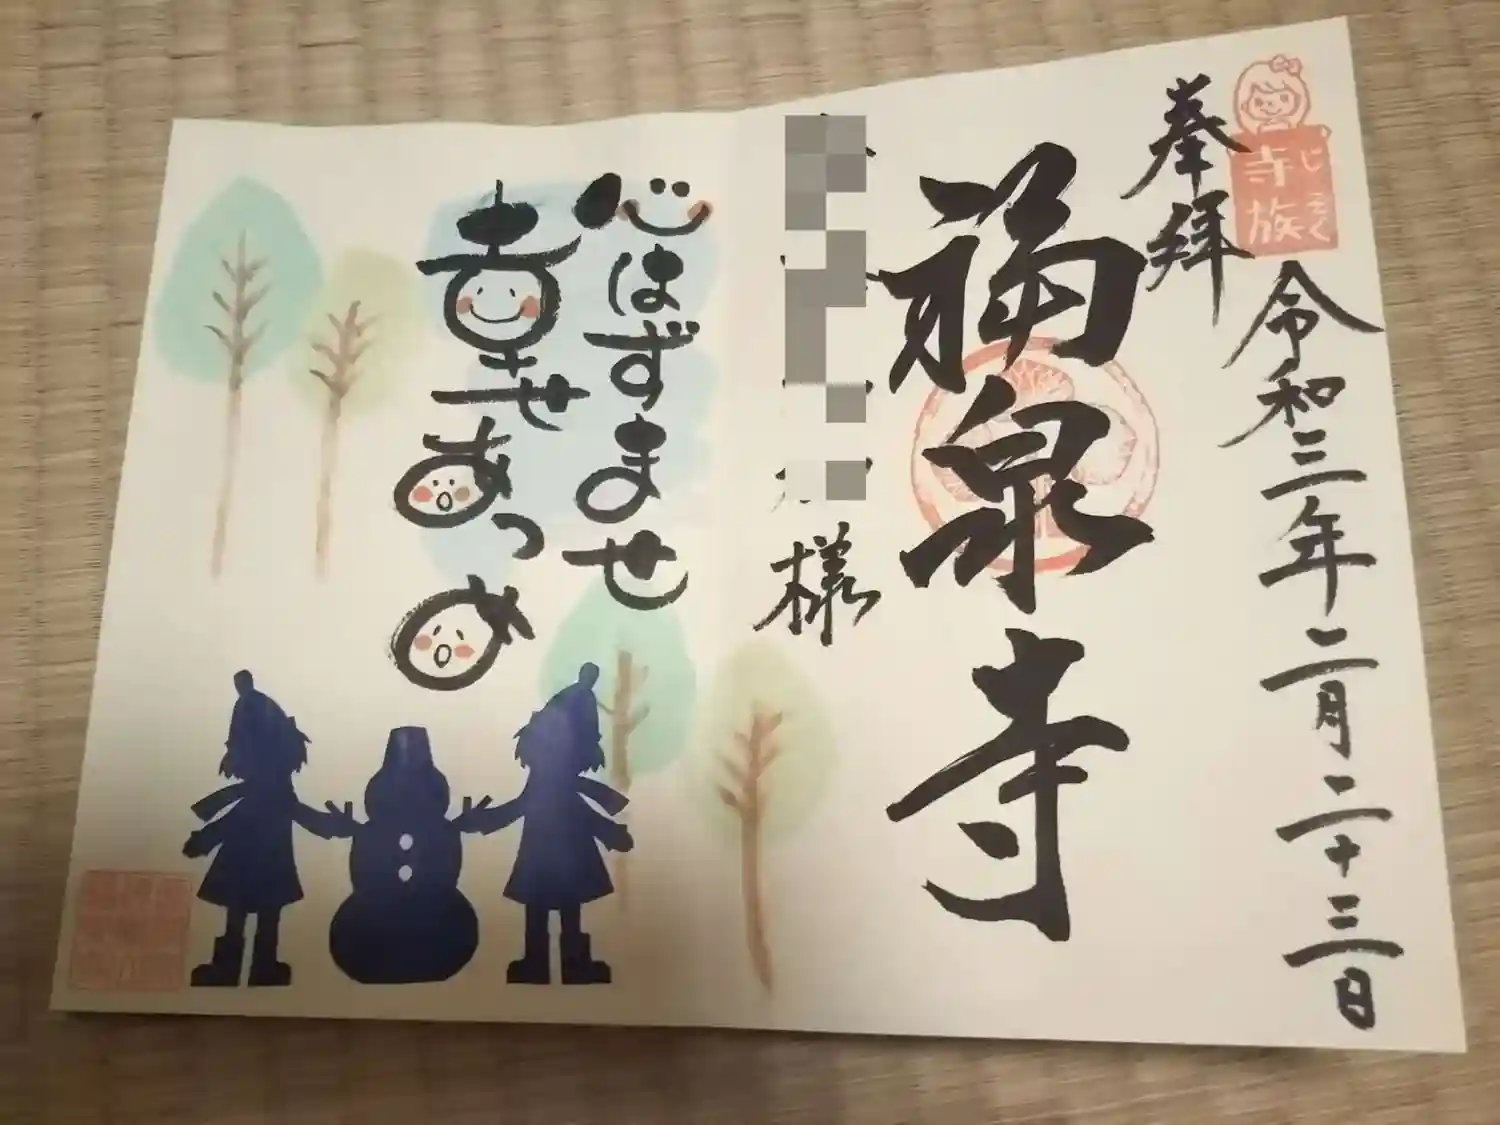 奉拝
じぞく
寺族
令和三年二月二十三日
福泉寺
様
心はずませ
幸せあつめ